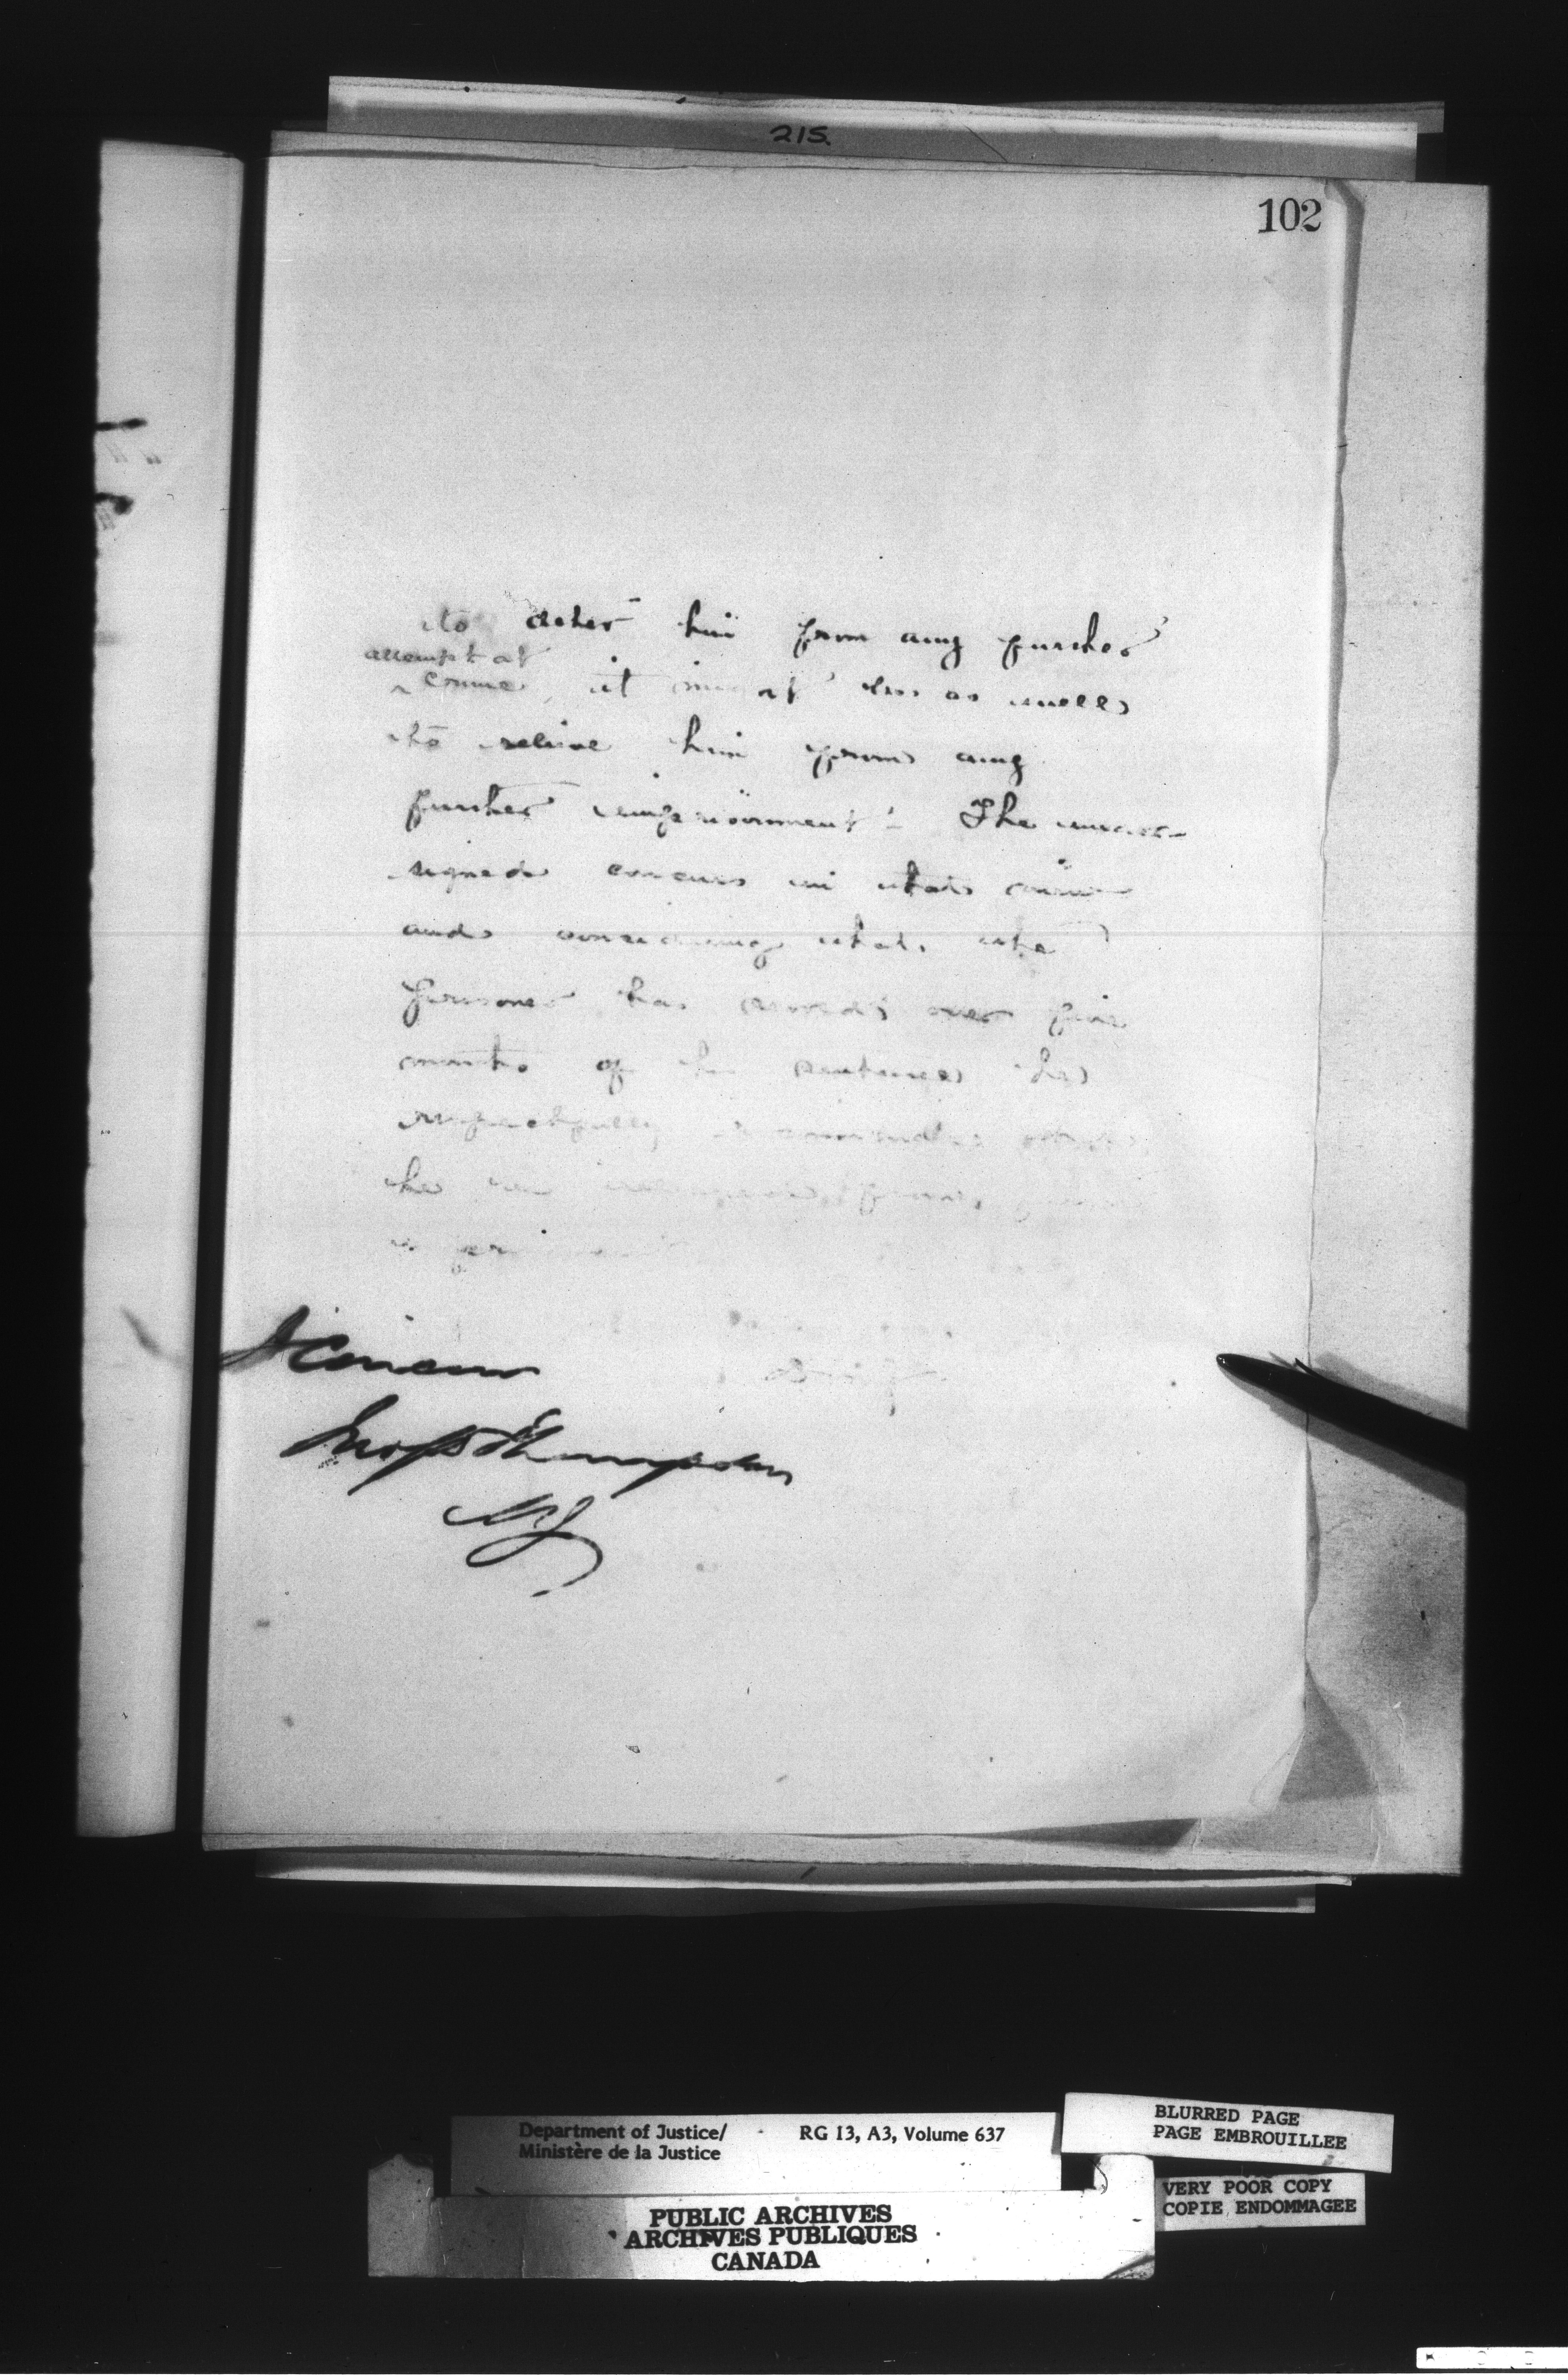 215.
102
to deter him from any further
attempt at
^ crime, it might be as well
to relieve him from any
further imprisonment. The under-
signed concurs in that view
and considering that the
prisoner has served over five
months of his sentence he
respectfully recommends that
he be released from further
imprisonment
I Concur
Jno S D Thompson
MJ
Department of Justice/ RG 13, A3, Volume 637
Ministère de la Justice
BLURRED PAGE
PAGE EMBROUILLEE
VERY POOR COPY
COPIE ENDOMMAGEE
PUBLIC ARCHIVES
ARCHIVES PUBLIQUES
CANADA